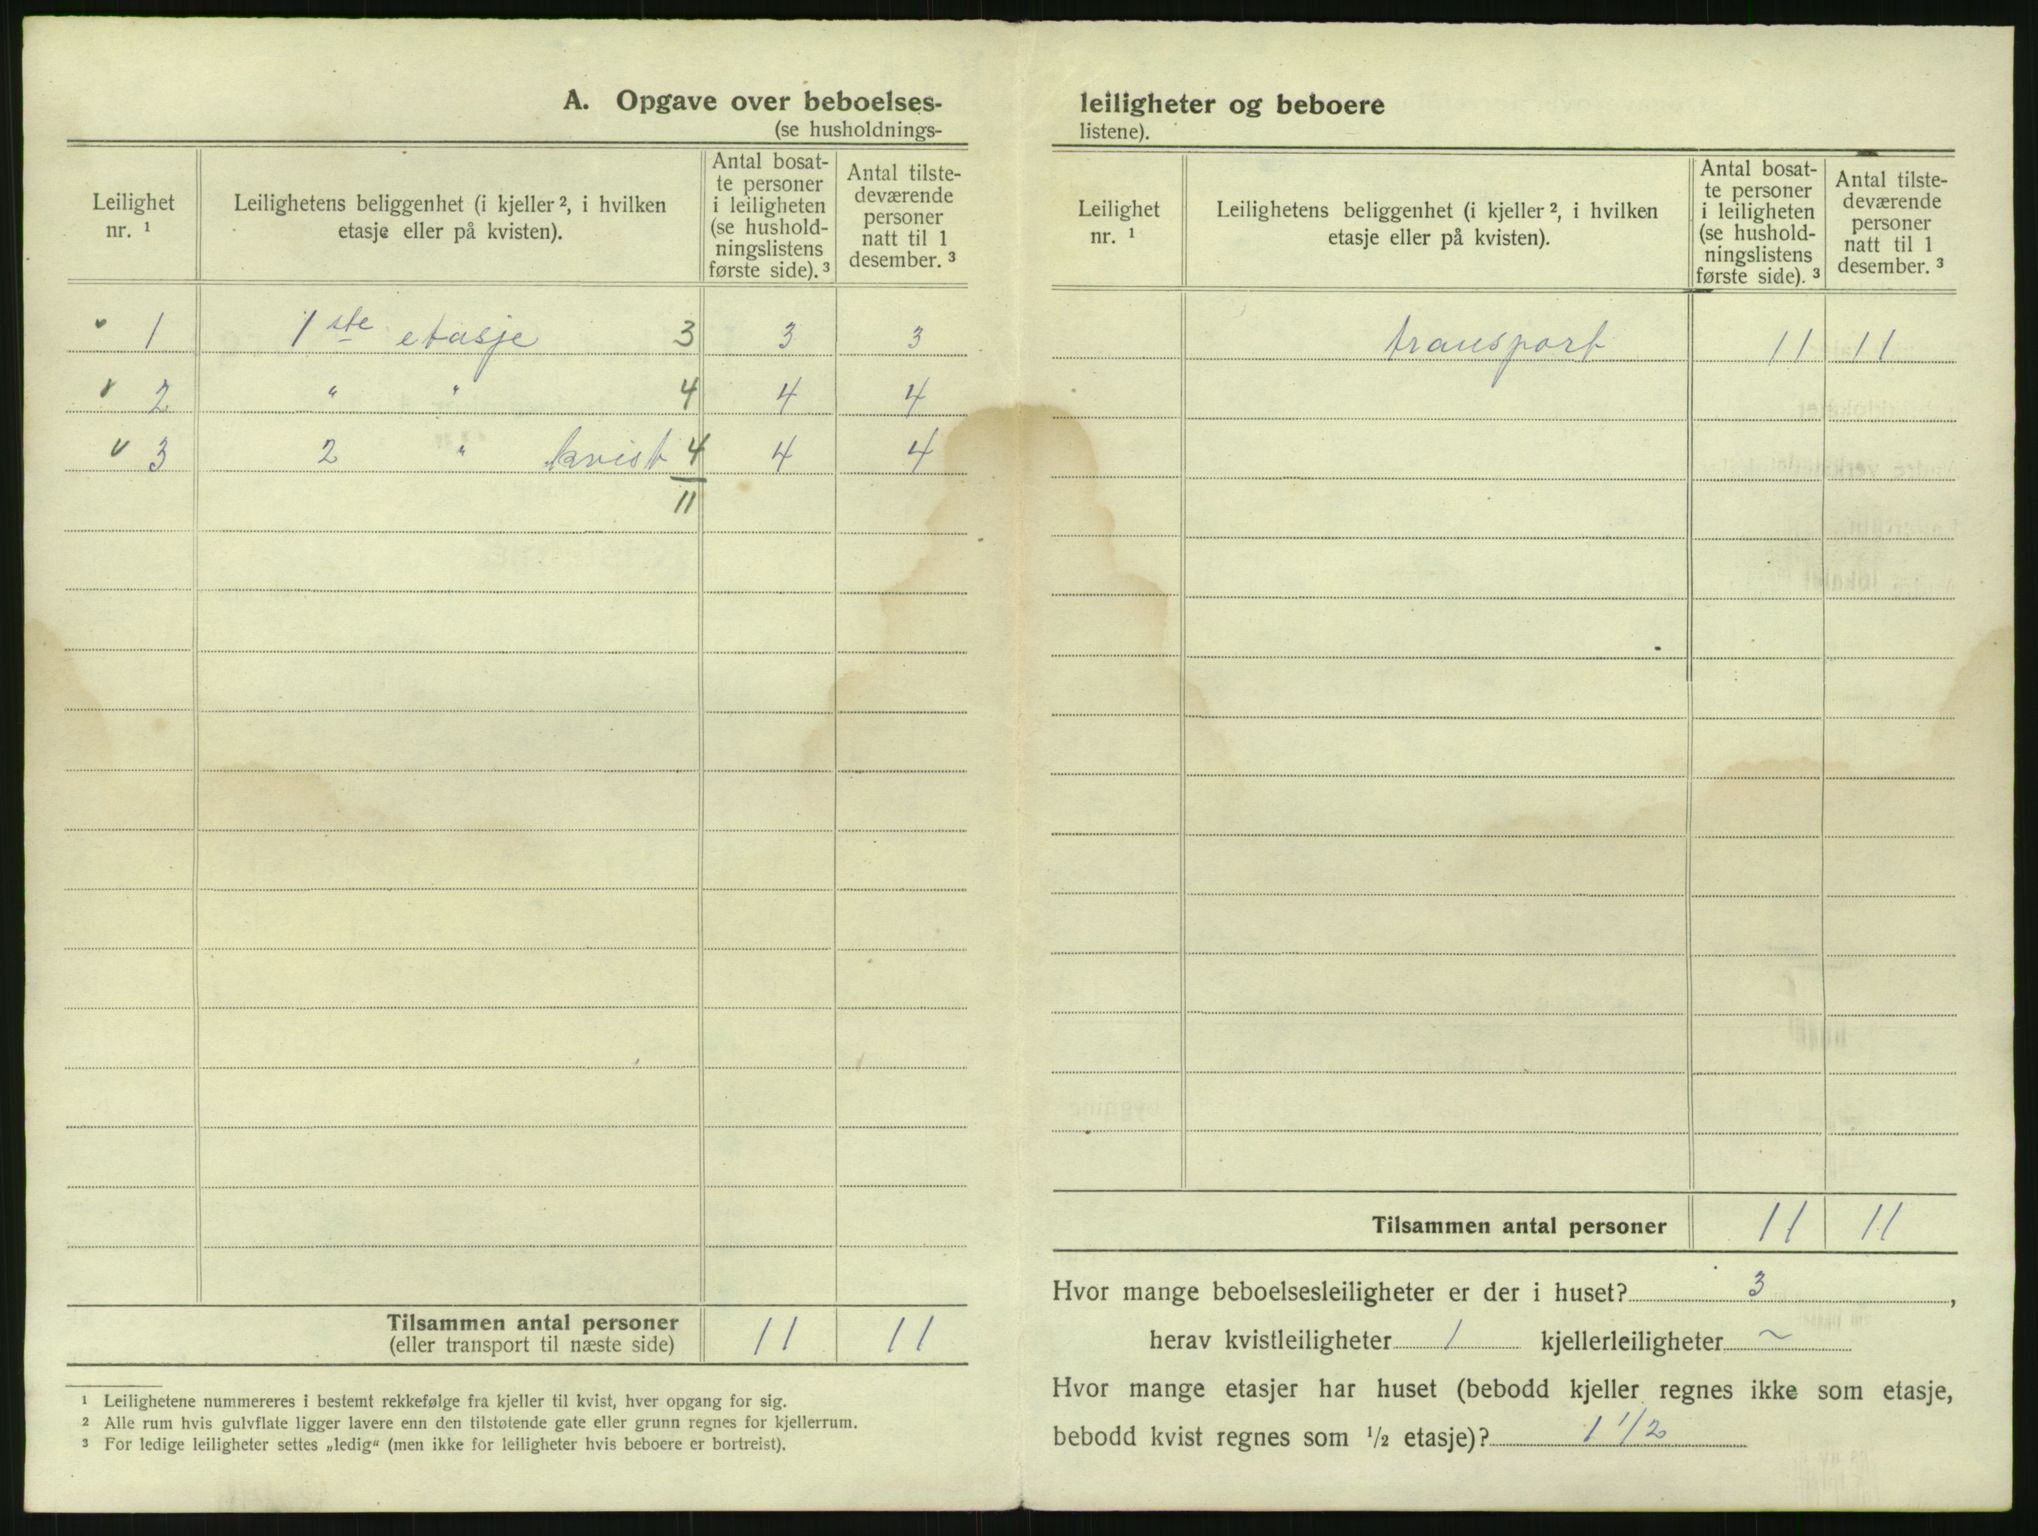 A. Opgave over beboelses-
(se husholdnings-
Leilighet nr. ¹
Leilighetens beliggenhet (i kjeller ², i hvilken etasje eller på kvisten).
Antal bosat-
te personer
i leiligheten
(se hushold-
ningslistens
første side). ³
Antal tilste-
deværende
personer
natt til 1
desember. ³
1 1ste etasje 3 3 3
2 " " 4 4 4
3 2 " kvist 4 4 4
11
Tilsammen antal personer 11 11
(eller transport til næste side)
¹ Leilighetene nummereres i bestemt rekkefølge fra kjeller til kvist, hver opgang for sig.
² Alle rum hvis gulvflate ligger lavere enn den tilstøtende gate eller grunn regnes for kjellerrum.
³ For ledige leiligheter settes „ledig“ (men ikke for leiligheter hvis beboere er bortreist).
leiligheter og beboere
listene).
Leilighet nr. ¹
Leilighetens beliggenhet (i kjeller ², i hvilken etasje eller på kvisten).
Antal bosat-
te personer
i leiligheten
(se hushold-
ningslistens
første side). ³
Antal tilste-
deværende
personer
natt til 1
desember. ³
transport 11 11
Tilsammen antal personer 11 11
Hvor mange beboelsesleiligheter er der i huset? 3,
herav kvistleiligheter 1 kjellerleiligheter ~
Hvor mange etasjer har huset (bebodd kjeller regnes ikke som etasje,
bebodd kvist regnes som ½ etasje)? 1 1/2